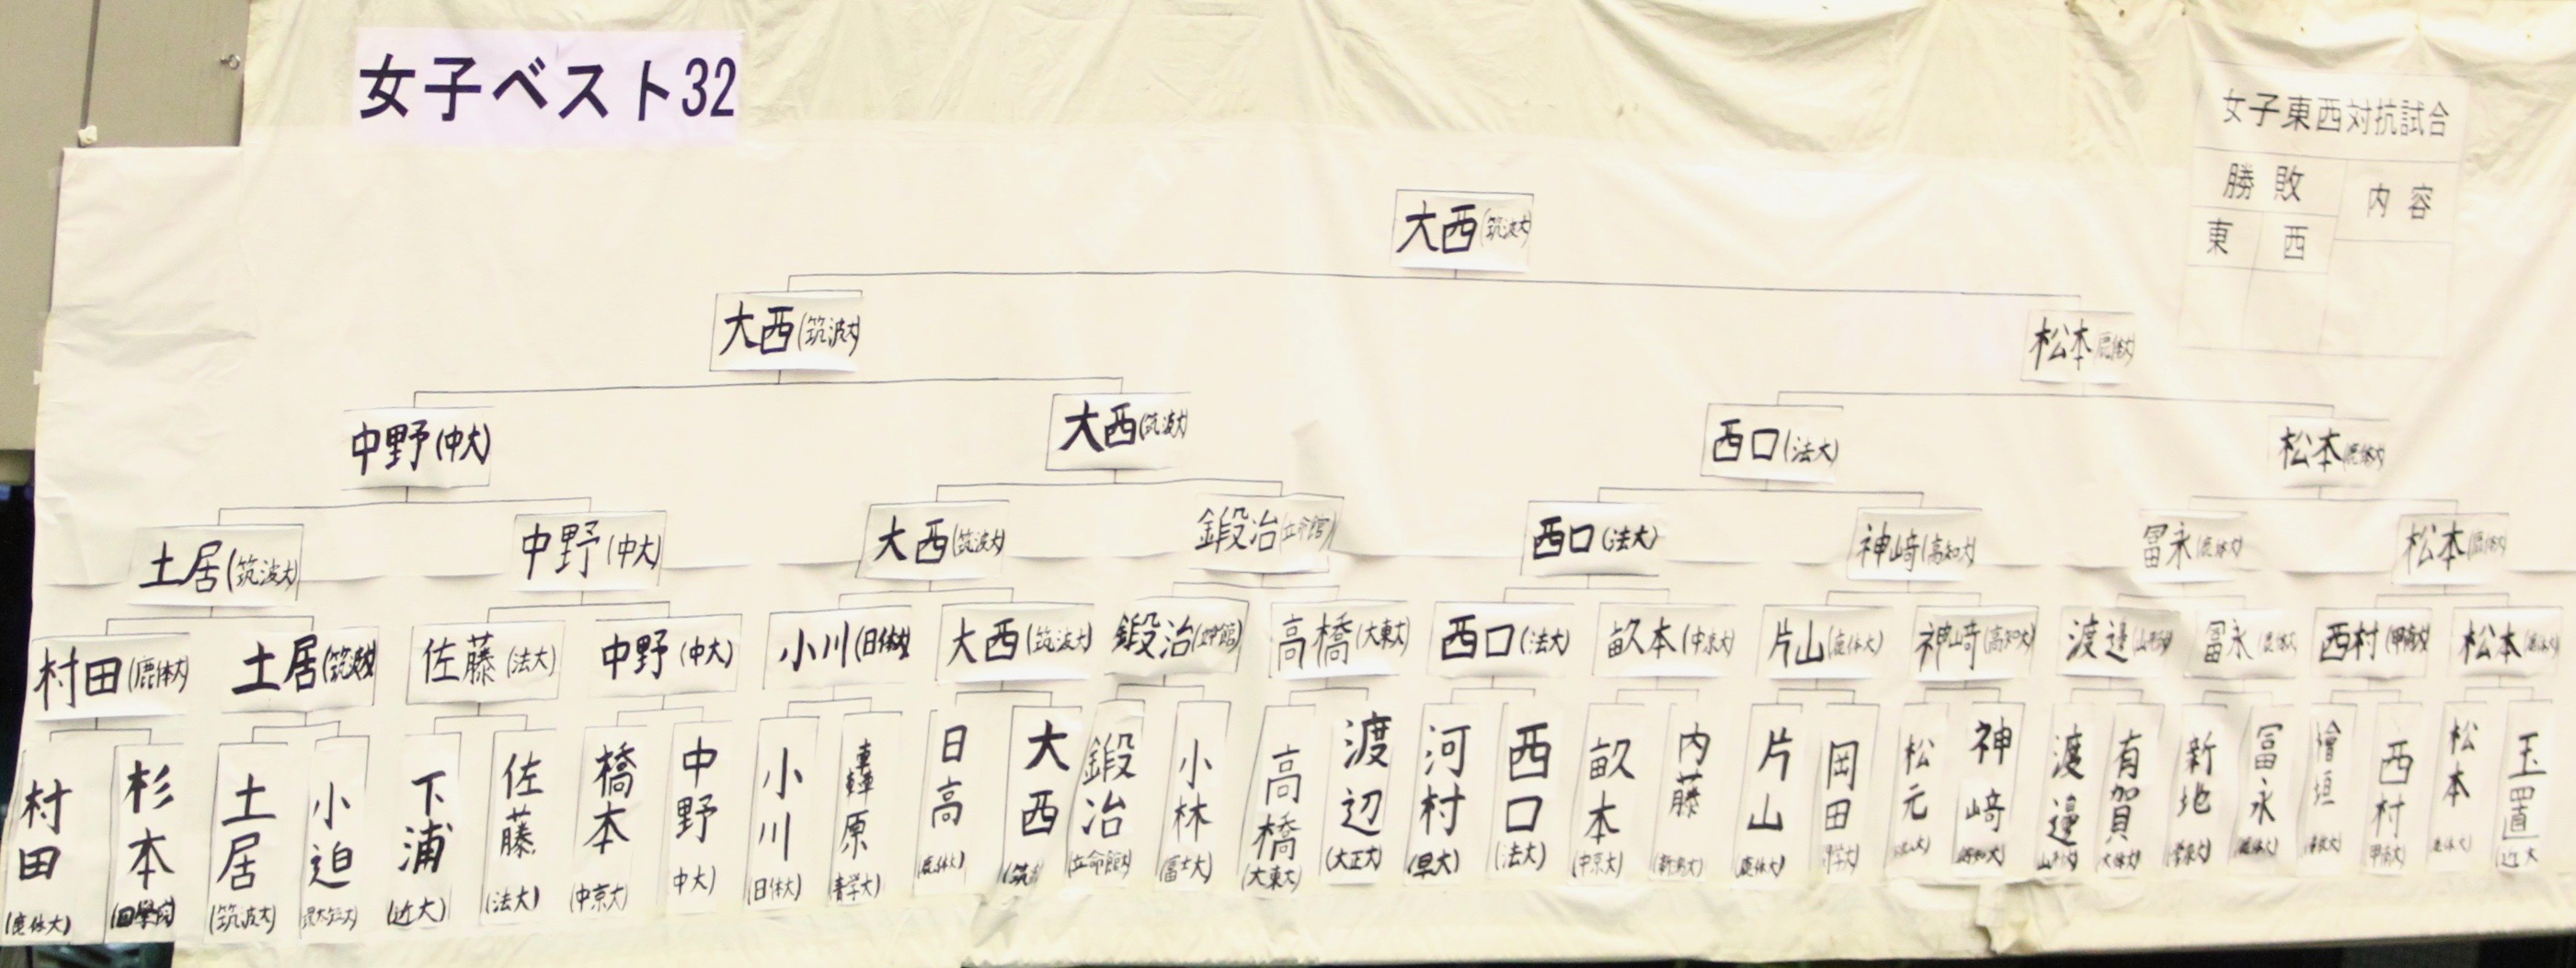 女子ベスト32
女子東西対抗試合
勝敗 内容
東 西
大西(筑波大)
大西(筑波大) 松本(鹿体大)
中野(中大) 大西(筑波大) 西口(法大) 松本(鹿体大)
土居(筑波大) 中野(中大) 大西(筑波大) 鍛冶(立命館) 西口(法大) 神﨑(高知大) 冨永(鹿体大) 松本(鹿体大)
村田(鹿体大) 土居(筑波大) 佐藤(法大) 中野(中大) 小川(日体大) 大西(筑波大) 鍛冶(立命館) 高橋(大東大) 西口(法大) 畝本(中京大) 片山(鹿体大) 神﨑(高知大) 渡邉(山形大) 冨永(鹿体大) 西村(甲南大) 松本(鹿体大)
村田 杉本 土居 小迫 下浦 佐藤 橋本 中野 小川 轟原 日高 大西 鍛冶 小林 高橋 渡辺 河村 西口 畝本 内藤 片山 岡田 松元 神﨑 渡邉 有賀 新地 冨永 檜垣 西村 松本 玉置
(鹿体大) (国學院) (筑波大) (近大) (法大) (中京大) (中大) (日体大) (青学大) (鹿体大) (筑 (立命館大) (富士大) (大東大) (大正大) (早大) (法大) (中京大) (新潟大) (鹿体大) (高知大) (山形大) (大体大) (鹿体大) (甲南大) (鹿体大) (近大